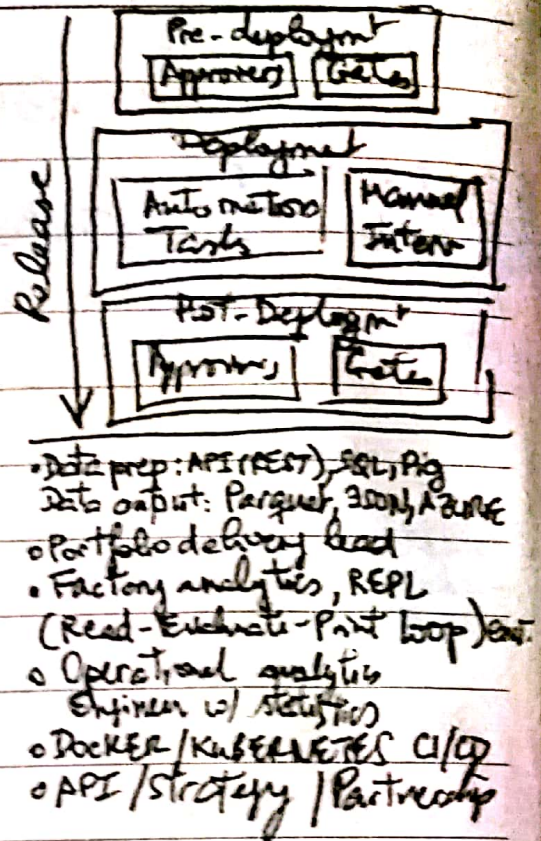 Pre-deploymt
Approvers Gates
Deployment
Automation Manual
Tasks Interv
Release
Post-Deploymt
Approvers Gates
• Data prep: API (REST), SQL, Pig
Data output: Parquet, JSON, AZURE
• Portfolio delivery lead
• Factory analytics, REPL
(Read-Evaluate-Print Loop)
• Operational analytics
Engineer w/ statistics
• DOCKER/KUBERNETES CI/CD
• API/Strategy/